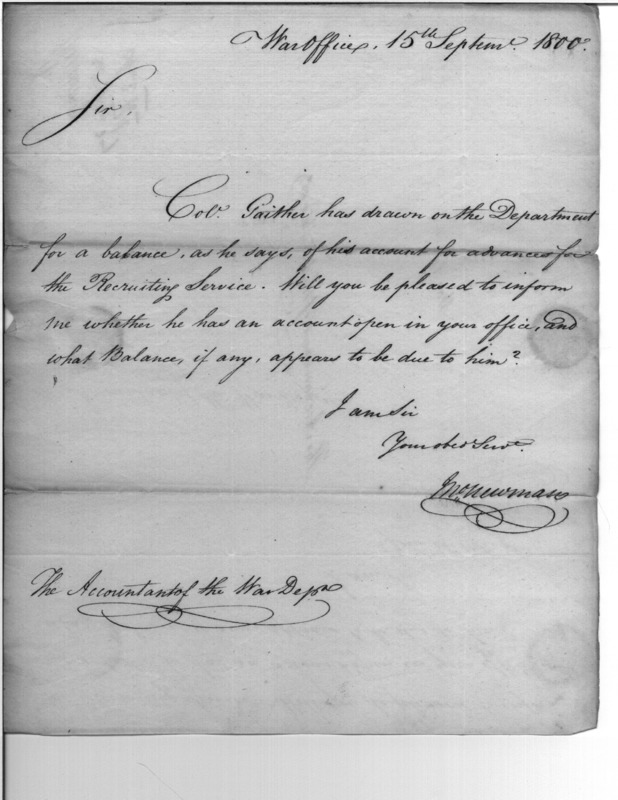 War Office, 15th Septemr. 1800.
Sir,
Colo. Gaither has drawn on the Department
for a balance, as he says, of his account for advances for
the Recruiting Service. Will you be pleased to inform
me whether he has an account open in your office, and
what Balance, if any, appears to be due to him?
I am Sir
Your obed Servt.
Jno Newman
The Accountant of the War Depn